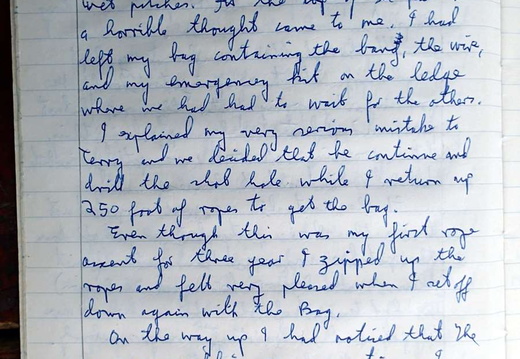 wet pitches. For the
a horrible thought came to me. I had
left my bag containing the bang, the wire,
and my emergency kit on the ledge
where we had had to wait for the others.
I explained my very serious mistake to
Terry and we decided that he continue and
drill the shot hole while I return up
250 foot of ropes to get the bag.
Even though this was my first rope
assent for three year I zipped up the
ropes and felt very pleased when I set off
down again with the Bag.
On the way up I had noticed that the